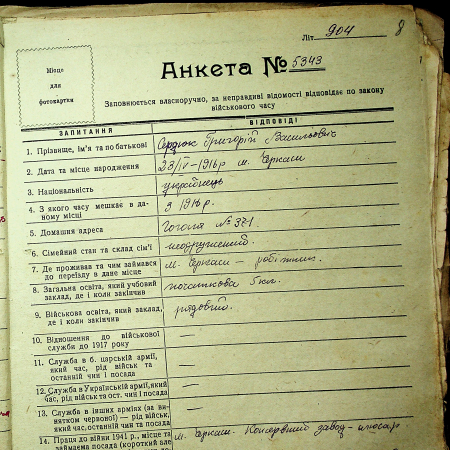 Літ. 904
8
Місце
для
фотокартки
Анкета № 5343
Заповнюється власноручно, за неправдиві відомості відповідає по закону
військового часу
ЗАПИТАННЯ
ВІДПОВІДІ
1. Прізвище, ім'я та по батькові
Сердюк Григорій Васильович
2. Дата та місце народження
23/IV-1916р м. Черкаси
3. Національність
українець
4. З якого часу мешкає в да-
ному місці
з 1916 р.
5. Домашня адреса
Гоголя № 371
6. Сімейний стан та склад сім'ї
неодружений.
7. Де проживав та чим займався
до переїзду в дане місце
м. Черкаси – робітник.
8. Загальна освіта, який учбовий
заклад, де і коли закінчив
початкова 5 кл.
9. Військова освіта, який заклад,
де і коли закінчив
рядовий.
10. Відношення до військової
служби до 1917 року
—
11. Служба в б. царській армії,
який час, рід військ та
останній чин і посада
—
12. Служба в Українській армії, який
час, рід військ та ост. чин і посада
—
13. Служба в інших арміях (за ви-
нятком червоної) — рід військ,
який час, останній чин та посада
—
14. Праця до війни 1941 р., місце та
займаєма посада (короткий
м. Черкаси. Консервний завод – слюсар